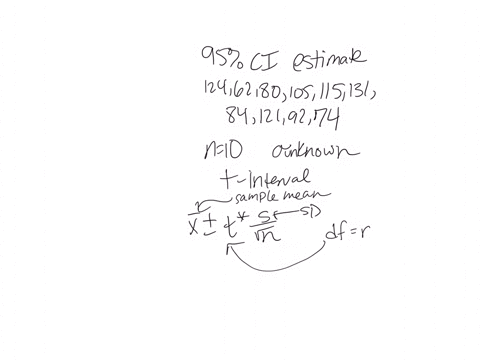 95% CI estimate
124,62,80,105,115,131,
84,121,92,74
n=10 σ unknown
t-Interval
sample mean
x̄ ± t* s/√n ← SD
df = r